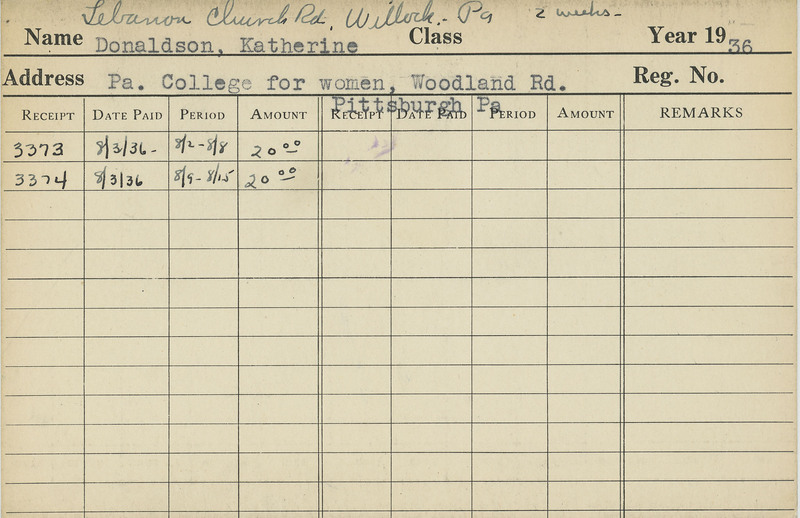 Lebanon Church Rd, Willock. Pa 2 weeks-
Name Donaldson, Katherine Class Year 1936
Address Pa. College for women, Woodland Rd. Reg. No.
Pittsburgh Pa
RECEIPT DATE PAID PERIOD AMOUNT RECEIPT DATE PAID PERIOD AMOUNT REMARKS
3373 8/3/36- 8/2-8/8 20 00
3374 8/3/36 8/9-8/15 20 00